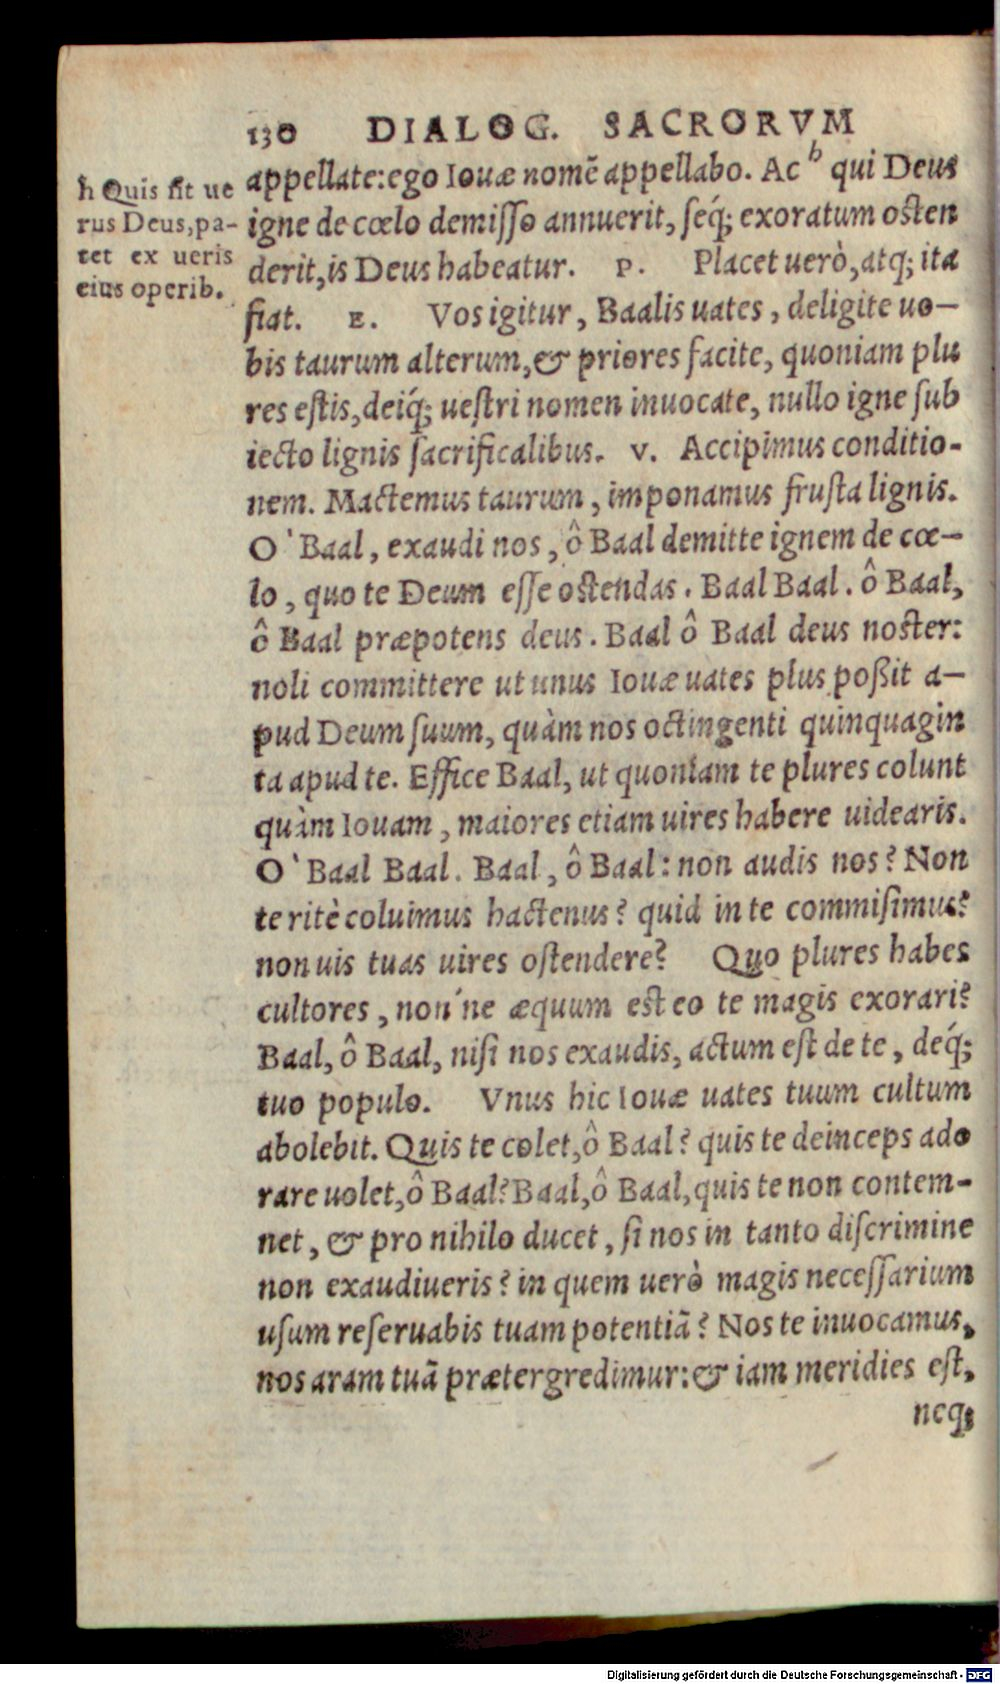 130 DIALOG. SACRORVM
appellate: ego Iouæ nomẽ appellabo. Ac h qui Deus
igne de cœlo demisso annuerit, seq́; exoratum osten
derit, is Deus habeatur. P. Placet uerò, atq; ita
fiat. E. Vos igitur, Baalis uates, deligite uo-
bis taurum alterum, & priores facite, quoniam plu
res estis, deiq́; uestri nomen inuocate, nullo igne sub
iecto lignis sacrificalibus. V. Accipimus conditio-
nem. Mactemus taurum, imponamus frusta lignis.
O` Baal, exaudi nos, ô Baal demitte ignem de cœ-
lo, quo te Deum esse ostendas. Baal Baal. ô Baal,
ô Baal præpotens deus. Baal ô Baal deus noster:
noli committere ut unus Iouæ uates plus poßit a-
pud Deum suum, quàm nos octingenti quinquagin
ta apud te. Effice Baal, ut quoniam te plures colunt
quàm Iouam, maiores etiam uires habere uidearis.
O` Baal Baal. Baal, ô Baal: non audis nos? Non
te ritè coluimus hactenus? quid in te commisimus?
non uis tuas uires ostendere? Quo plures habes
cultores, non´ne æquum est eo te magis exorari?
Baal, ô Baal, nisi nos exaudis, actum est de te, deq́;
tuo populo. Vnus hic Iouæ uates tuum cultum
abolebit. Quis te colet, ô Baal? quis te deinceps ado
rare uolet, ô Baal? Baal, ô Baal, quis te non contem-
net, & pro nihilo ducet, si nos in tanto discrimine
non exaudiueris? in quem uerò magis necessarium
usum reseruabis tuam potentiã? Nos te inuocamus,
nos aram tuã prætergredimur: & iam meridies est,
neq;
h Quis sit ue
rus Deus, pa-
tet ex ueris
eius operib.
Digitalisierung gefördert durch die Deutsche Forschungsgemeinschaft - DFG